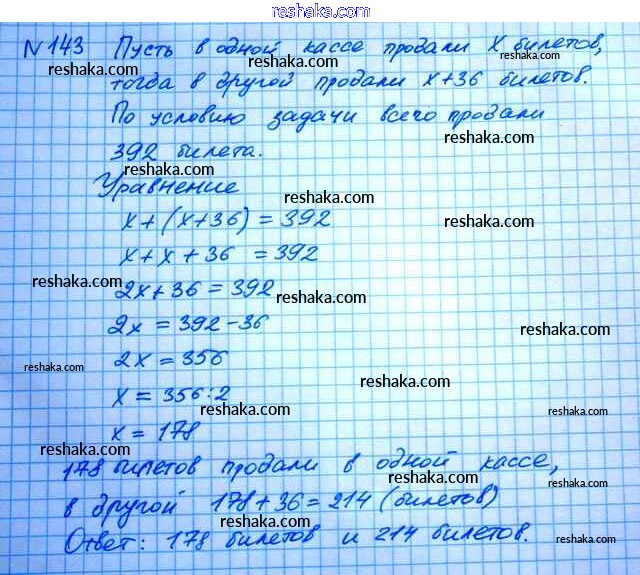 reshaka.com
N143 Пусть в одной кассе продали x билетов,
тогда в другой продали x+36 билетов.
По условию задачи всего продали
392 билета.
Уравнение
x+(x+36)=392
x+x+36=392
2x+36=392
2x=392-36
2x=356
x=356:2
x=178
178 билетов продали в одной кассе,
в другой 178+36=214 (билетов)
Ответ: 178 билетов и 214 билетов.
reshaka.com
reshaka.com
reshaka.com
reshaka.com
reshaka.com
reshaka.com
reshaka.com
reshaka.com
reshaka.com
reshaka.com
reshaka.com
reshaka.com
reshaka.com
reshaka.com
reshaka.com
reshaka.com
reshaka.com
reshaka.com
reshaka.com